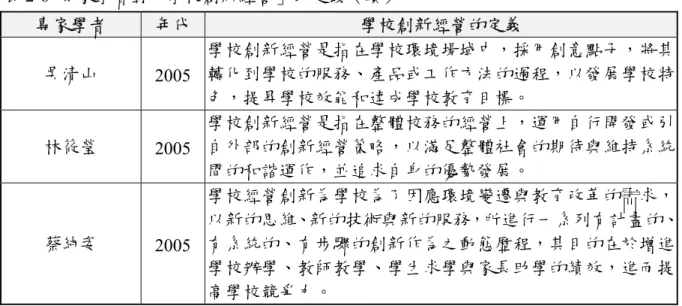 專家學者 年代 學校創新經營的定義
吳清山 2005
學校創新經營是指在學校環境場域中，採用創意點子，將其
轉化到學校的服務、產品或工作方法的過程，以發展學校特
色，提昇學校效能和達成學校教育目標。
林筱瑩 2005
學校創新經營是指在整體校務的經營上，運用自行開發或引
自外部的創新經營策略，以滿足整體社會的期待與維持系統
間的和諧運作，並追求自身的優勢發展。
蔡純姿 2005
學校經營創新為學校為了因應環境變遷與教育改革的需求，
以新的思維、新的技術與新的服務，所進行一系列有計畫的、
有系統的、有步驟的創新作為之動態歷程，其目的在於增進
學校辦學、教師教學、學生求學與家長助學的績效，進而提
高學校競爭力。